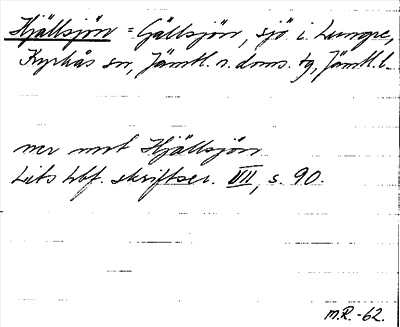 Hjällsjön = Gällsjön, sjö i Lungre,
Kyrkås sn, Jämtl. n. doms. tg, Jämtl. l.
mer mot Hjällsjön
Lits hbf. skriftser. VII, s. 90.
M.R. -62.